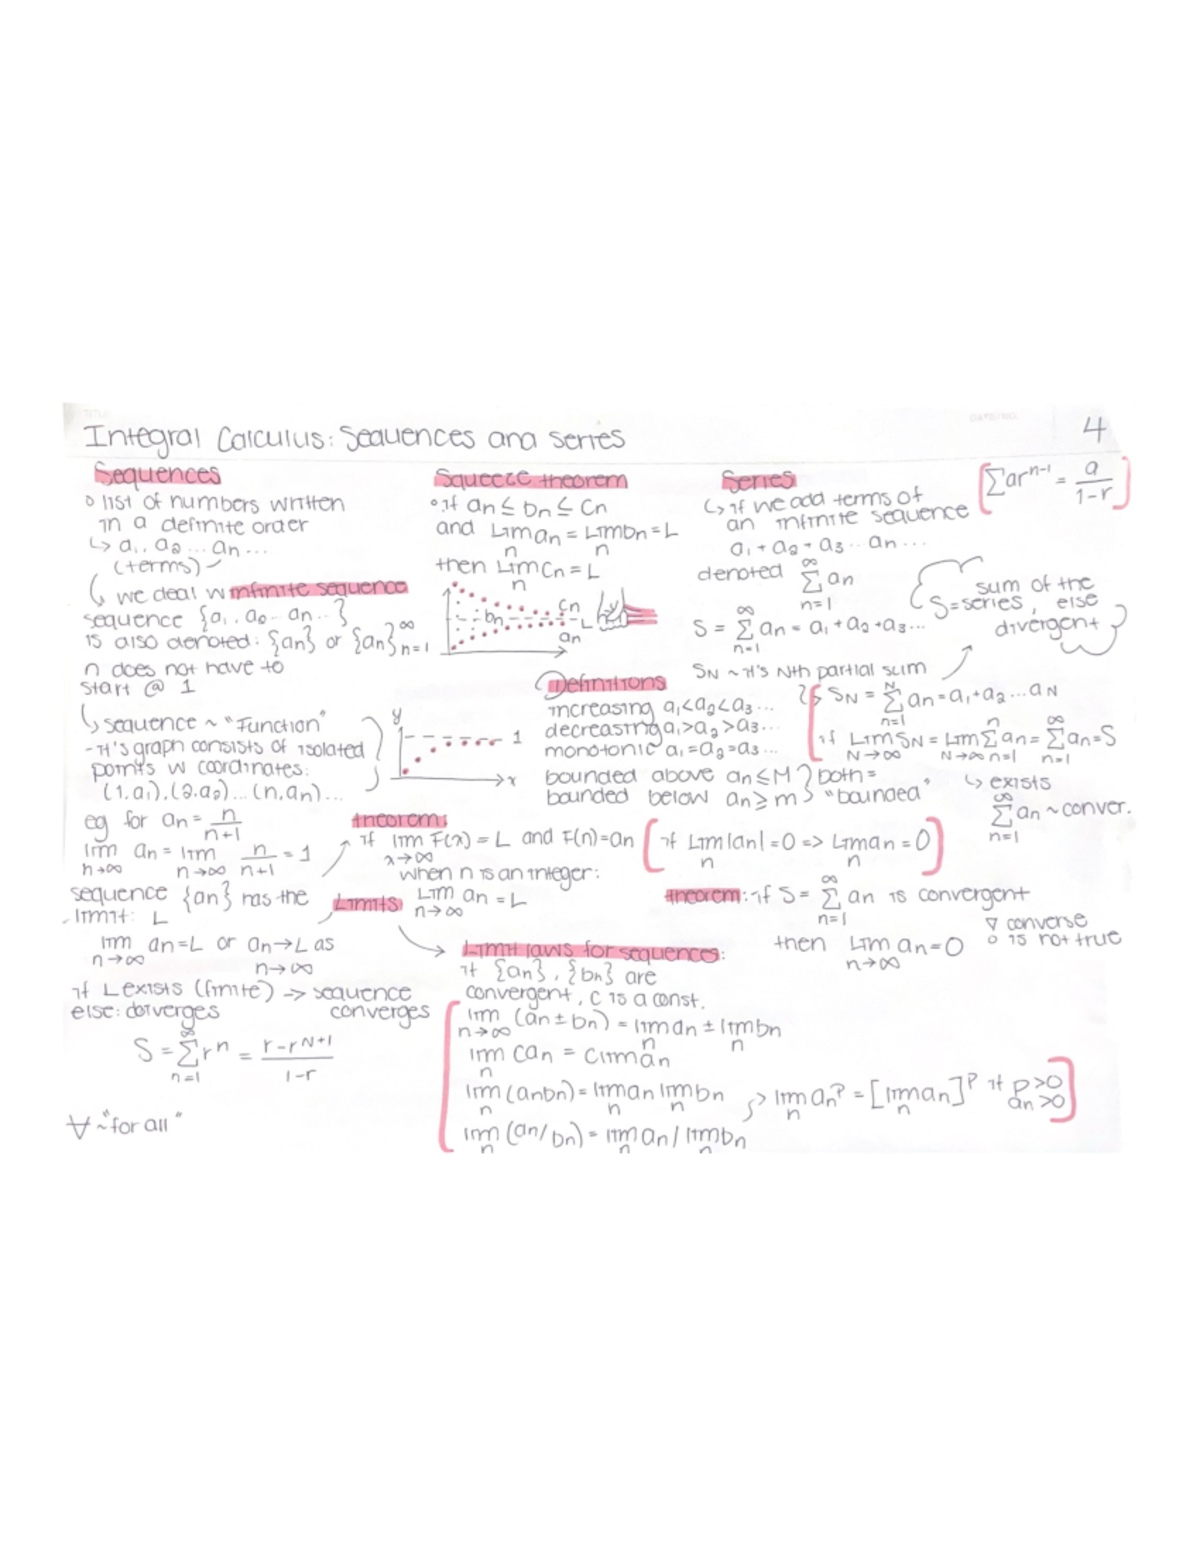 Integral Calculus: Sequences and series
4
Sequences
list of numbers written
in a definite order
↳ a₁, a₂ ... an ...
(terms)
↳ we deal w infinite sequence
sequence {a₁, a₂ ... an ...}
is also denoted: {an} or {an}∞n=1
n does not have to
start @ 1
↳ sequence ~ "Function"
- it's graph consists of isolated
points w coordinates:
(1,a₁),(2,a₂)...(n,an)...
eg for an = n/n+1
lim n→∞ an = lim n→∞ n/n+1 = 1
sequence {an} has the
limit: L
lim n→∞ an = L or an → L as n→∞
if L exists (finite) → sequence converges
else: diverges
S = ∞Σn=1 rⁿ = r-r^N+1 / 1-r
∀ ~ "for all"
y
1
x
Squeeze theorem
if an ≤ bn ≤ Cn
and Lim n an = Lim n bn = L
then Lim n Cn = L
Cn
bn
L
an
Definitions
increasing a₁<a₂<a₃...
decreasing a₁>a₂>a₃...
monotonic a₁=a₂=a₃...
bounded above an ≤ M } both =
bounded below an ≥ m } "bounded"
theorem:
if lim x→∞ F(x) = L and F(n)=an
when n is an integer:
Limits
Lim n→∞ an = L
[if Lim n |an| = 0 => Lim n an = 0]
Limit laws for sequences:
if {an}, {bn} are
convergent, C is a const.
lim n→∞ (an ± bn) = lim n an ± lim n bn
lim n can = C lim n an
lim n (anbn) = lim n an lim n bn
lim n anᴾ = [lim n an]ᴾ if p>0 an>0
lim n (an/bn) = lim n an / lim n bn
Series
[Σarⁿ⁻¹ = a/1-r]
↳ if we add terms of
an infinite sequence
a₁ + a₂ + a₃ ... an ...
denoted ∞Σn=1 an
sum of the
S=series, else
divergent
S = ∞Σn=1 an = a₁ + a₂ + a₃...
SN ~ it's Nth partial sum
SN = NΣn=1 an = a₁+a₂...aN
if Lim N→∞ SN = Lim N→∞ nΣn=1 an = ∞Σn=1 an = S
↳ exists
∞Σn=1 an ~ conver.
theorem: if S = ∞Σn=1 an is convergent
then Lim n→∞ an = 0
converse
is not true